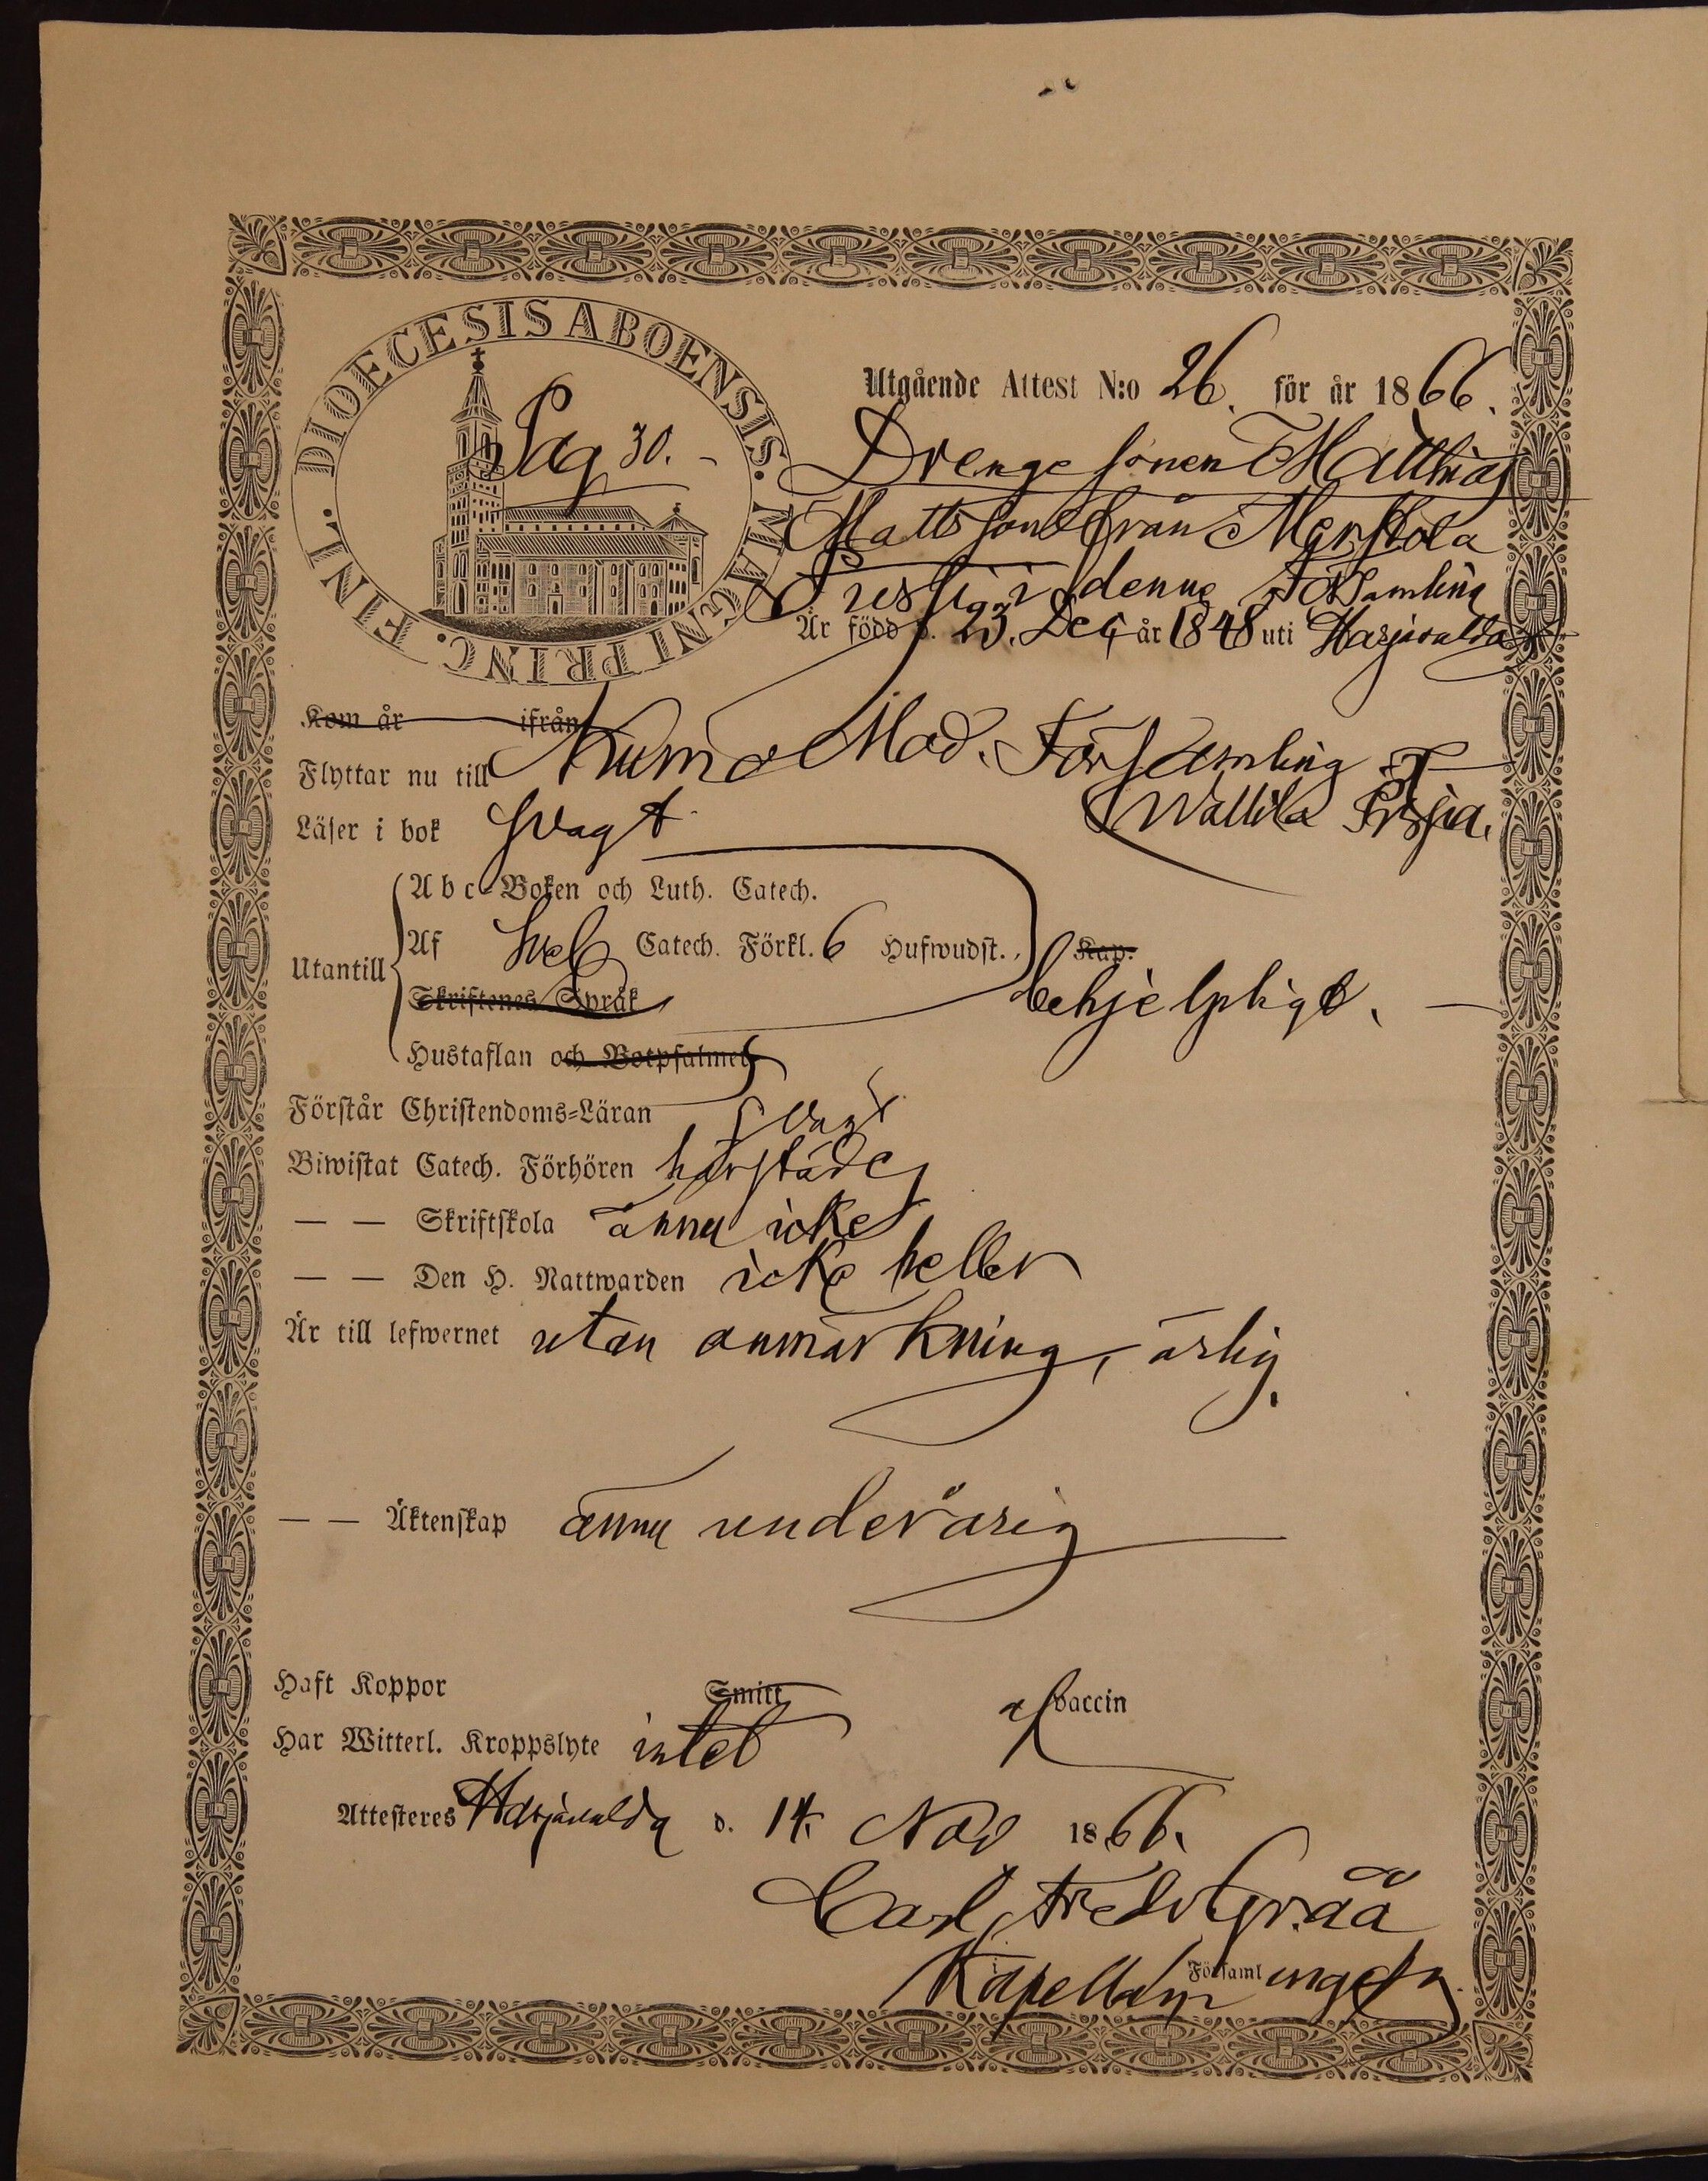 DIOECESIS ABOENSIS. MAGNI PRINC. FINL.
Pag 30.
Utgående Attest N:o 26. för år 1866.
Drenge sonen Matthias
Matts son från Merstola
i denna Församling
Är född d. 23. Dec. år 1848 uti Harjavalda
Kom år ifrån
Flyttar nu till Kumo Mod. Församling
Wallila
Läser i bok svagt
Abc-Boken och Luth. Catech.
Utantill
Af Catech. Förkl. 6 Hufwudst. Kap.
behjelpligt.
Skriftenes Språk
Hustaflan och Botpsalmen
Förstår Christendoms-Läran svagt
Biwistat Catech. Förhören härstädes
— — Skriftskola ännu icke
— — Den H. Nattwarden icke heller
Är till lefwernet utan anmärkning, ärlig.
— — Äktenskap ännu underårig
Haft Koppor Smitt vaccin
Har Witterl. Kroppslyte intet
Attesteres Harjavalda d. 14. Nov 1866.
Carl Fredr
Kapellan i Församlingen